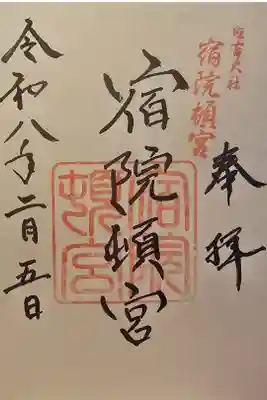 奉拝
住吉大社
宿院頓宮
宿院頓宮
宿院
頓宮
令和八年二月五日